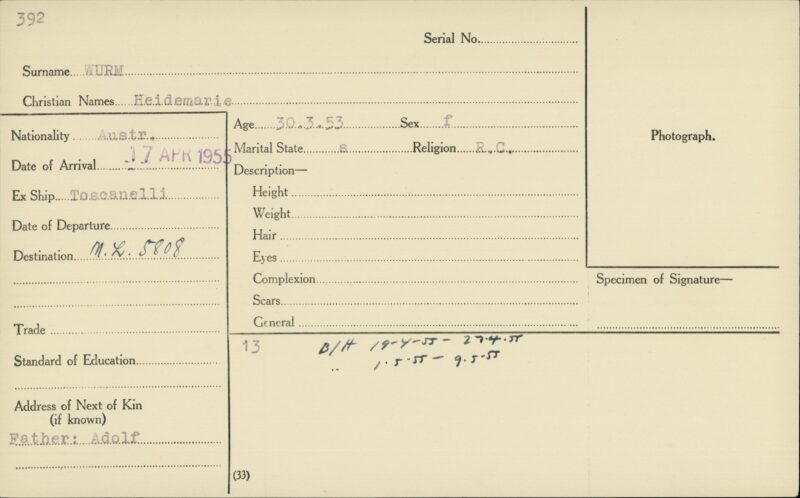 392
Serial No.
Surname WURM
Christian Names Heidemarie
Nationality Austr.
Date of Arrival 17 APR 1955
Ex Ship Toscanelli
Date of Departure
Destination M.L. 5808
Trade
Standard of Education
Address of Next of Kin
(if known)
Father: Adolf
Age 30.3.53 Sex f
Marital State s Religion R.C.
Description—
Height
Weight
Hair
Eyes
Complexion
Scars
General
Photograph.
Specimen of Signature—
13 B/H 19-4-55 - 27.4.55
" 1.5.55 - 9.5.55
(33)